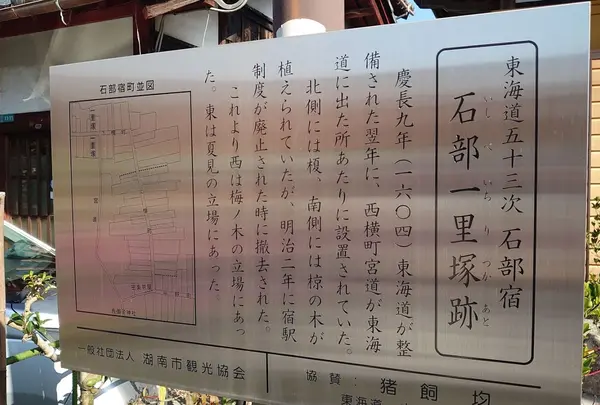 東海道五十三次 石部宿
いしべいちりつかあと
石部一里塚跡
慶長九年（一六〇四）東海道が整
備された翌年に、西横町宮道が東海
道に出た所あたりに設置されていた。
北側には榎、南側には椋の木が
植えられていたが、明治二年に宿駅
制度が廃止された時に撤去された。
これより西は梅ノ木の立場にあっ
た。東は夏見の立場にあった。
石部宿町並図
一里塚
一般社団法人 湖南市観光協会
協賛：猪飼 均
東海道